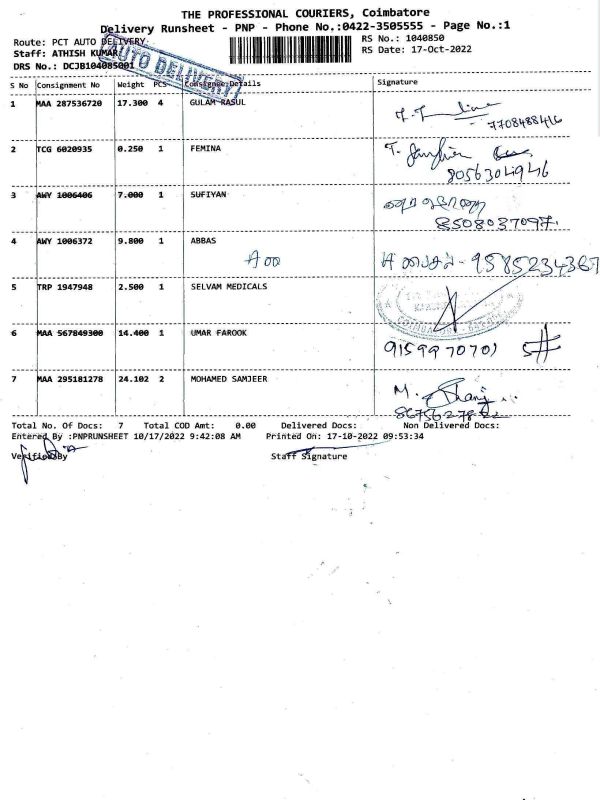 THE PROFESSIONAL COURIERS, Coimbatore
Delivery Runsheet - PNP - Phone No.:0422-3505555 - Page No.:1
Route: PCT AUTO DELIVERY
RS No.: 1040850
Staff: ATHISH KUMAR
RS Date: 17-Oct-2022
DRS No.: DCJB104085001
AUTO DELIVERY
S No Consignment No Weight PCS Consignee Details Signature
1 MAA 287536720 17.300 4 GULAM RASUL
7708488416
2 TCG 6020935 0.250 1 FEMINA
8056304946
3 AWY 1006406 7.000 1 SUFIYAN
8508037097
4 AWY 1006372 9.800 1 ABBAS
9585234367
5 TRP 1947948 2.500 1 SELVAM MEDICALS
6 MAA 567849300 14.400 1 UMAR FAROOK
9159970701
7 MAA 295181278 24.102 2 MOHAMED SAMJEER
M.
Total No. Of Docs: 7 Total COD Amt: 0.00 Delivered Docs: Non Delivered Docs:
Entered By :PNPRUNSHEET 10/17/2022 9:42:08 AM Printed On: 17-10-2022 09:53:34
Verified By Staff Signature